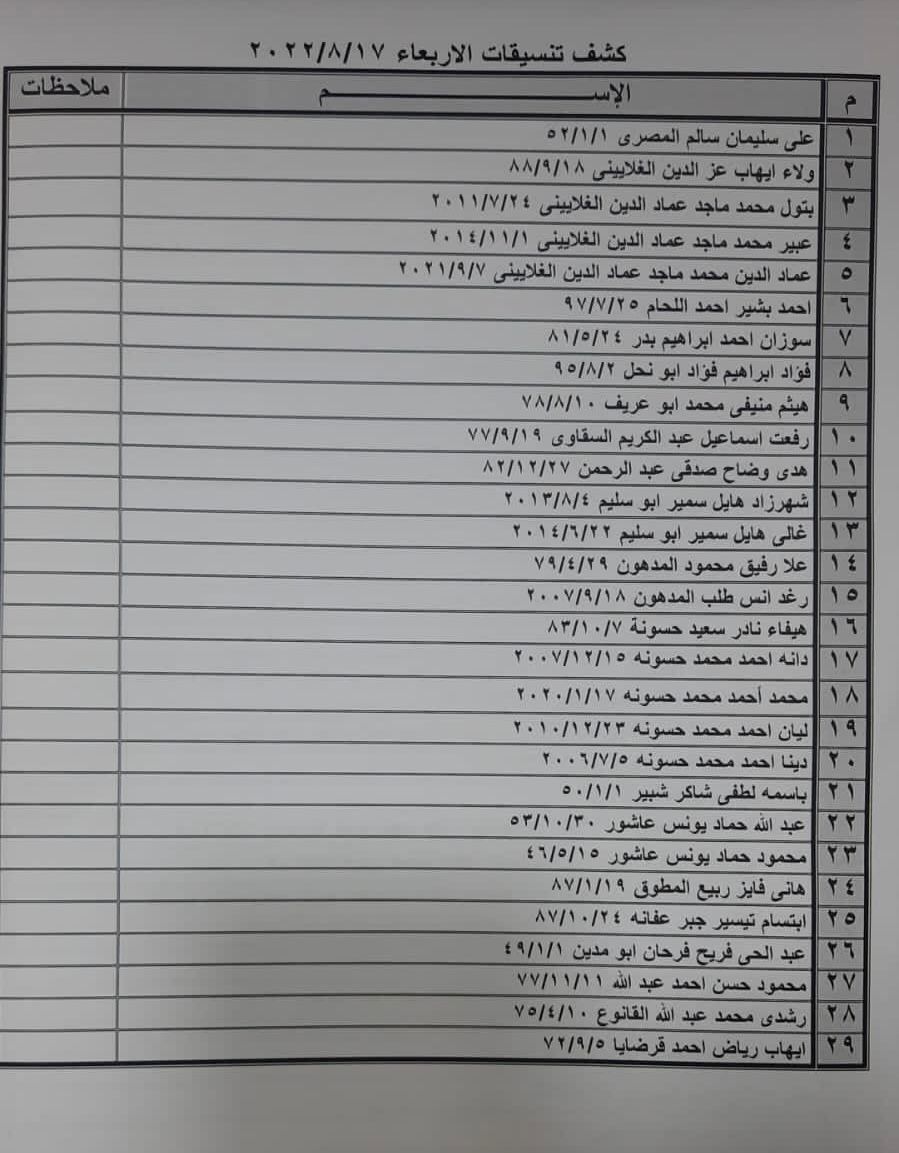 كشف تنسيقات الاربعاء ٢٠٢٢/٨/١٧
م الإســـم ملاحظات
١ على سليمان سالم المصرى ٥٢/١/١
٢ ولاء ايهاب عز الدين الغلايينى ٨٨/٩/١٨
٣ بتول محمد ماجد عماد الدين الغلايينى ٢٠١١/٧/٢٤
٤ عبير محمد ماجد عماد الدين الغلايينى ٢٠١٤/١١/١
٥ عماد الدين محمد ماجد عماد الدين الغلايينى ٢٠٢١/٩/٧
٦ احمد بشير احمد اللحام ٩٧/٧/٢٥
٧ سوزان احمد ابراهيم بدر ٨١/٥/٢٤
٨ فؤاد ابراهيم فؤاد ابو نحل ٩٥/٨/٢
٩ هيثم منيفى محمد ابو عريف ٧٨/٨/١٠
١٠ رفعت اسماعيل عبد الكريم السقاوى ٧٧/٩/١٩
١١ هدى وضاح صدقى عبد الرحمن ٨٢/١٢/٢٧
١٢ شهرزاد هايل سمير ابو سليم ٢٠١٣/٨/٤
١٣ غالى هايل سمير ابو سليم ٢٠١٤/٦/٢٢
١٤ علا رفيق محمود المدهون ٧٩/٤/٢٩
١٥ رغد انس طلب المدهون ٢٠٠٧/٩/١٨
١٦ هيفاء نادر سعيد حسونة ٨٣/١٠/٧
١٧ دانه احمد محمد حسونه ٢٠٠٧/١٢/١٥
١٨ محمد أحمد محمد حسونه ٢٠٢٠/١/١٧
١٩ ليان احمد محمد حسونه ٢٠١٠/١٢/٢٣
٢٠ دينا احمد محمد حسونه ٢٠٠٦/٧/٥
٢١ باسمه لطفى شاكر شبير ٥٠/١/١
٢٢ عبد الله حماد يونس عاشور ٥٣/١٠/٣٠
٢٣ محمود حماد يونس عاشور ٤٦/٥/١٥
٢٤ هانى فايز ربيع المطوق ٨٧/١/١٩
٢٥ ابتسام تيسير جبر عفانه ٨٧/١٠/٢٤
٢٦ عبد الحى فريح فرحان ابو مدين ٤٩/١/١
٢٧ محمود حسن احمد عبد الله ٧٧/١١/١١
٢٨ رشدى محمد عبد الله القانوع ٧٥/٤/١٠
٢٩ ايهاب رياض احمد قرضايا ٧٢/٩/٥